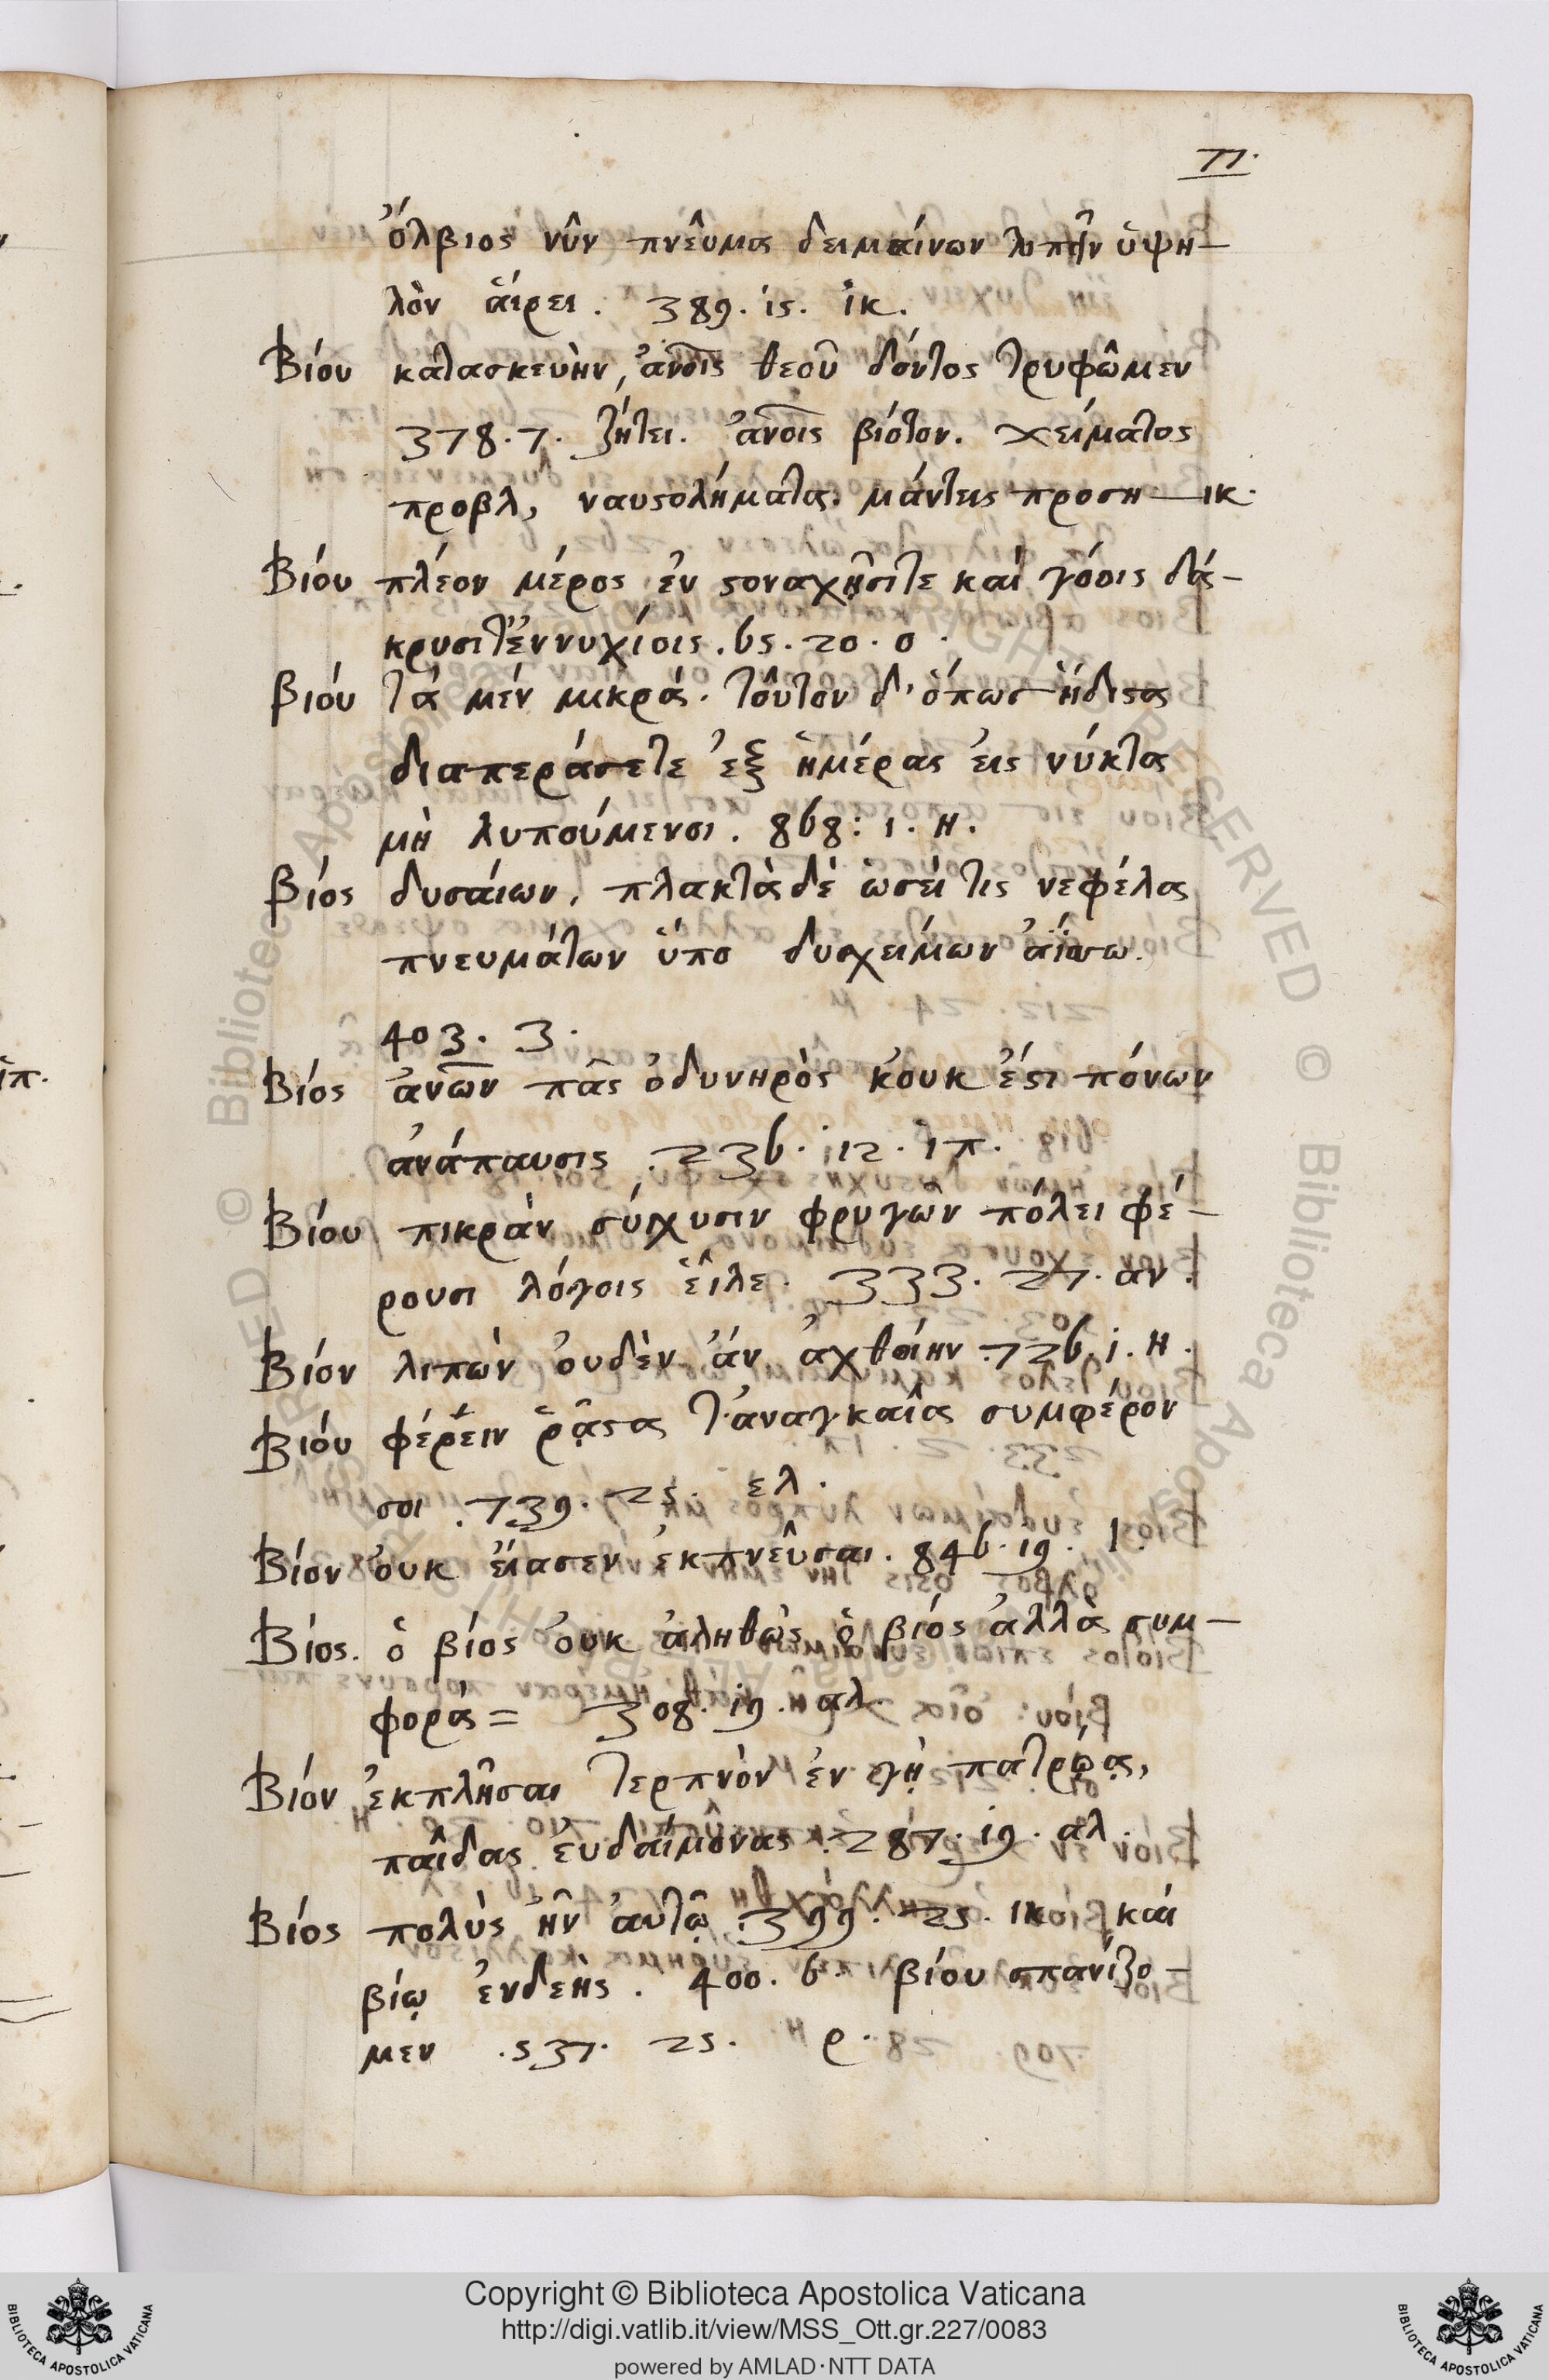 77.
ὄλβιος νῦν πνεῦμα δειμαίνων λιπῆν ὑψη-
λὸν ἄιρει. 389. ις. ἱκ.
Βίου κατασκευὴν, ἀνοῖς θεοῦ δόντος τρυφῶμεν
378. 7. ζήτει. ἀνοῖς βίοτον. χείματος
προβλ, ναυςολήματα. μάντεις προση— ικ.
Βίου πλέον μέρος ἐν ςοναχῇσίτε καὶ γόοις δά-
κρυσίτἐννυχίοις. 65. 20. ο.
βιόυ τὰ μέν μικρά. τοῦτον δ' ὅπως ἥδιςα
διαπεράσετε ἐξ ἡμέρας ἐις νύκτα
μὴ λυπούμενοι. 868: 1. Η.
βίος δυσάιων, πλακτὰ δὲ ὡσεί τις νεφέλα
πνευμάτων ὑπο δυσχείμων ἀίσσω.
403. 3.
Βίος ἀνων πᾶς ὀδυνηρὸς κ'ουκ ἔςι πόνων
ἀνάπαυσις. 236. 12. ἱπ.
Βίου πικρὰν σύγχυσιν φρυγῶν πόλει φέ-
ρουσι λόγοις εἷλε. 333. 27. αν.
Βίον λιπὼν ὀυδὲν ἄν ἀχθοίην. 726. 1. Η.
Βιόυ φέρειν ῥᾷςα τ'αναγκαῖα συμφέρον
σοι. 739. 25. ελ.
Βίον ὀυκ ἔιασεν ἐκπνεῦσαι. 846. 19. Ι.
Βίος. ὁ βίος ὀυκ ἀληθῶς ὁ βίος ἀλλὰ συμ-
φορά = 308. 19. αλ.
Βίον ἐκπλῆσαι τερπνὸν ἐν γῇ πατρῴᾳ,
παῖδας ἐυδαίμονας. 287. 19. αλ.
Βίος πολὺς ἦν ἀυτῷ. 399. 25. ικ. καὶ
βίῳ ἐνδεὴς. 400. 6. βίου σπανίζο-
μεν. 537. 25. ρ.
ἱπ.
Copyright © Biblioteca Apostolica Vaticana
http://digi.vatlib.it/view/MSS_Ott.gr.227/0083
powered by AMLAD·NTT DATA
BIBLIOTECA APOSTOLICA VATICANA
BIBLIOTECA APOSTOLICA VATICANA